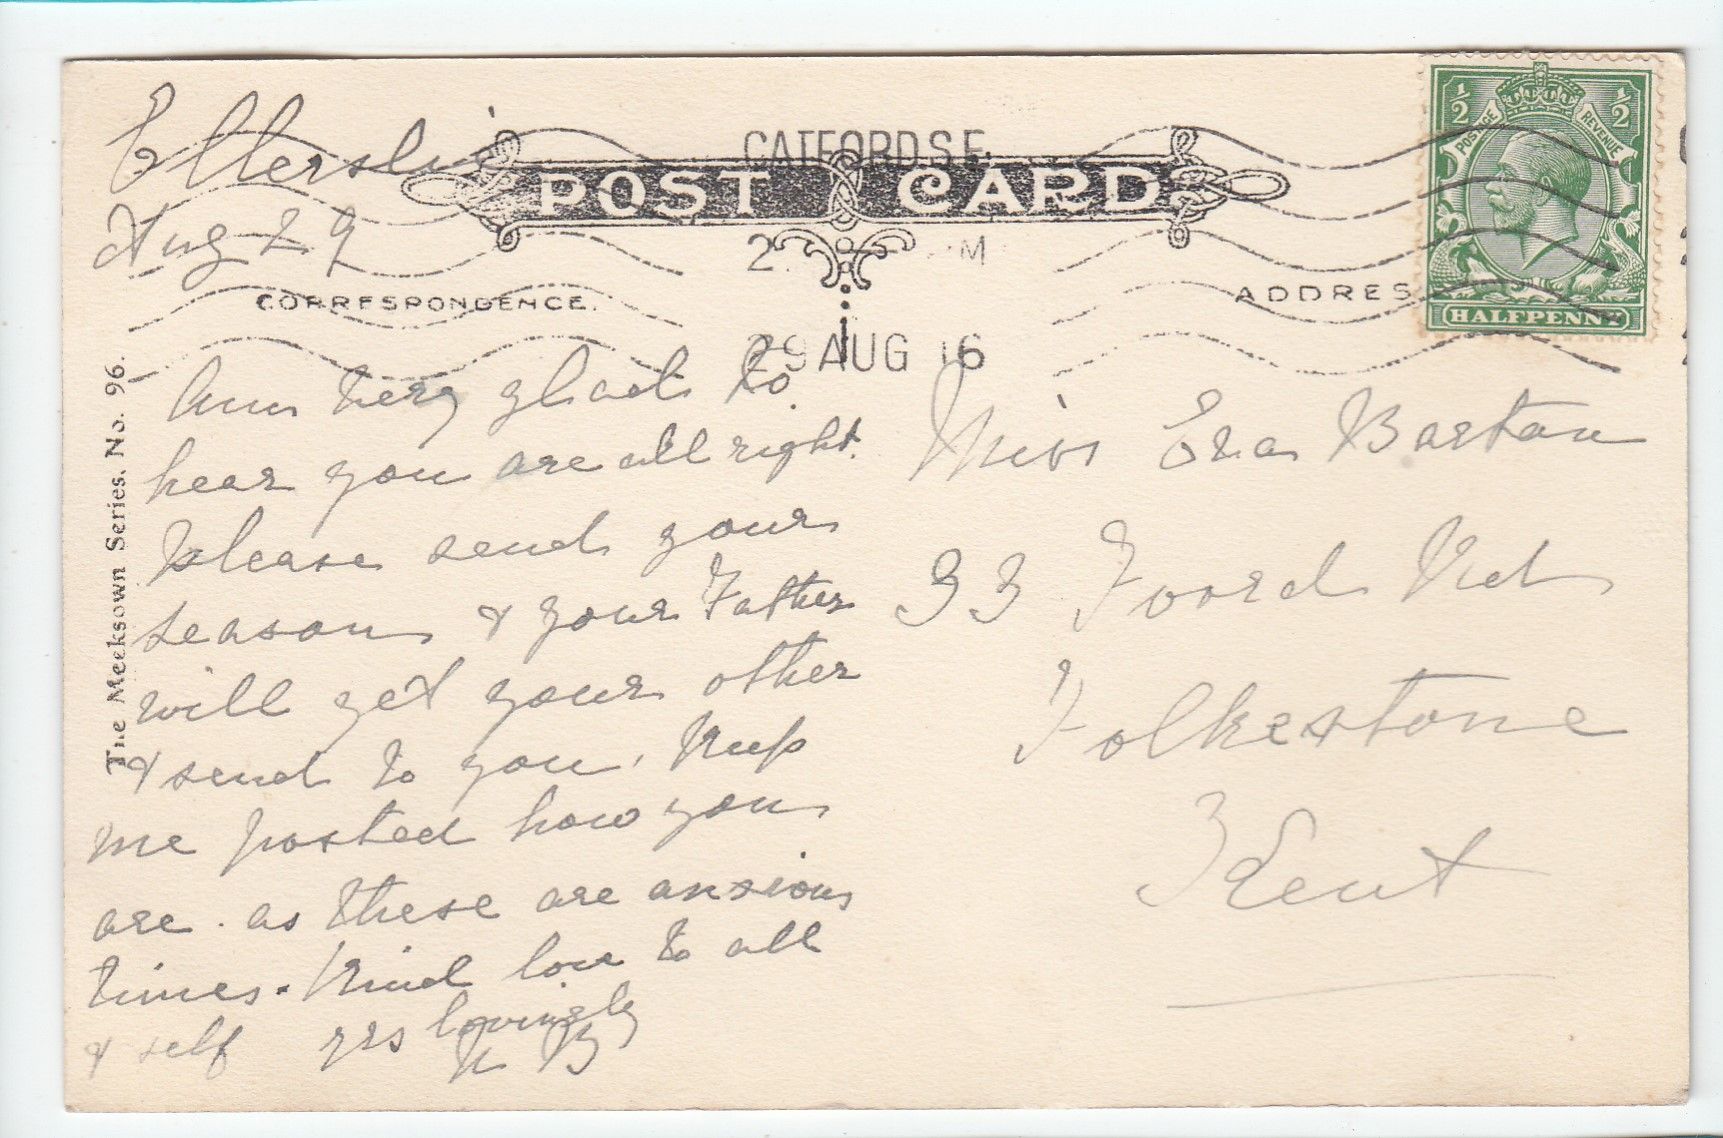 Ellerslie
Aug 29
CATFORD S.E.
POST CARD
2. M
CORRESPONDENCE.
ADDRES
29 AUG 16
½ ½
POSTAGE REVENUE
HALFPENNY
The Meeksown Series. No. 96.
Am very glad to
hear you are all right.
Please send your
season & your Father
will get your other
& send to you. Keep
me posted how you
are. as these are anxious
times. Kind love to all
& self yrs lovingly
B
Miss Eva Barton
33 Foord Rd
Folkestone
Kent